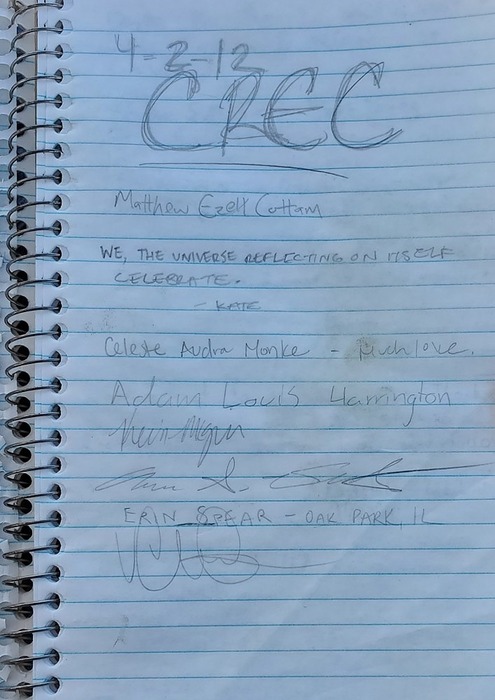 4-2-12
CREC
Matthew Ezell Cottam
WE, THE UNIVERSE REFLECTING ON ITSELF
CELEBRATE.
- KATE
Celeste Audra Monke - Much love.
Adam Louis Harrington
ERIN SPEAR - OAK PARK, IL